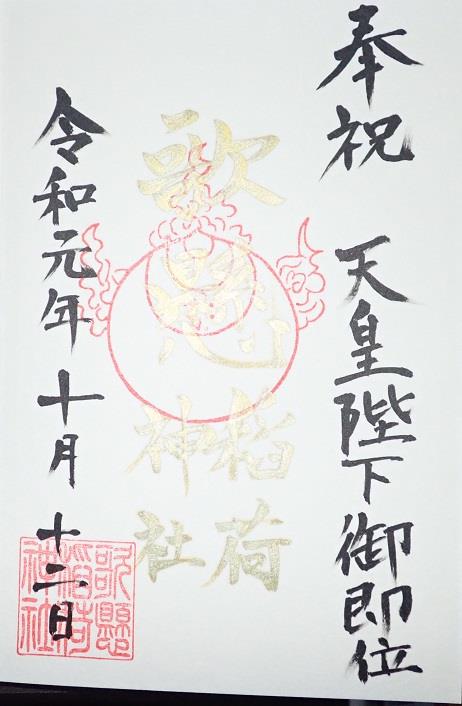 奉祝 天皇陛下御即位
歌懸
稲荷
神社
令和元年 十月 十二日
歌懸
稲荷
神社